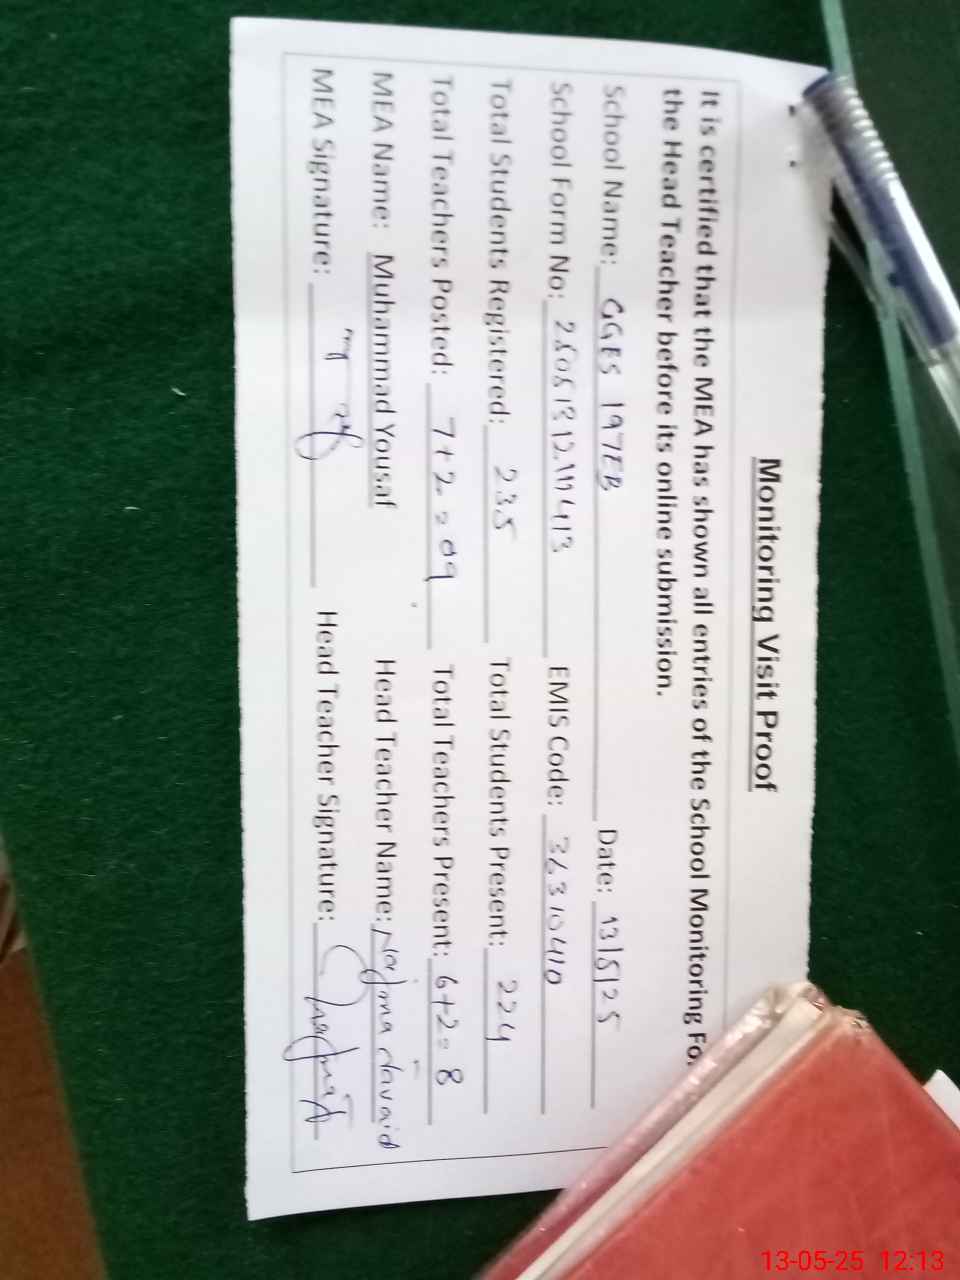 Monitoring Visit Proof
It is certified that the MEA has shown all entries of the School Monitoring Fo
the Head Teacher before its online submission.
School Name: GGES 197EB Date: 13/5/25
School Form No: EMIS Code: 36310410
Total Students Registered: 235 Total Students Present: 224
Total Teachers Posted: 7+2=09 Total Teachers Present: 6+2=8
MEA Name: Muhammad Yousaf Head Teacher Name: Najma Javaid
MEA Signature: Head Teacher Signature:
13-05-25 12:13